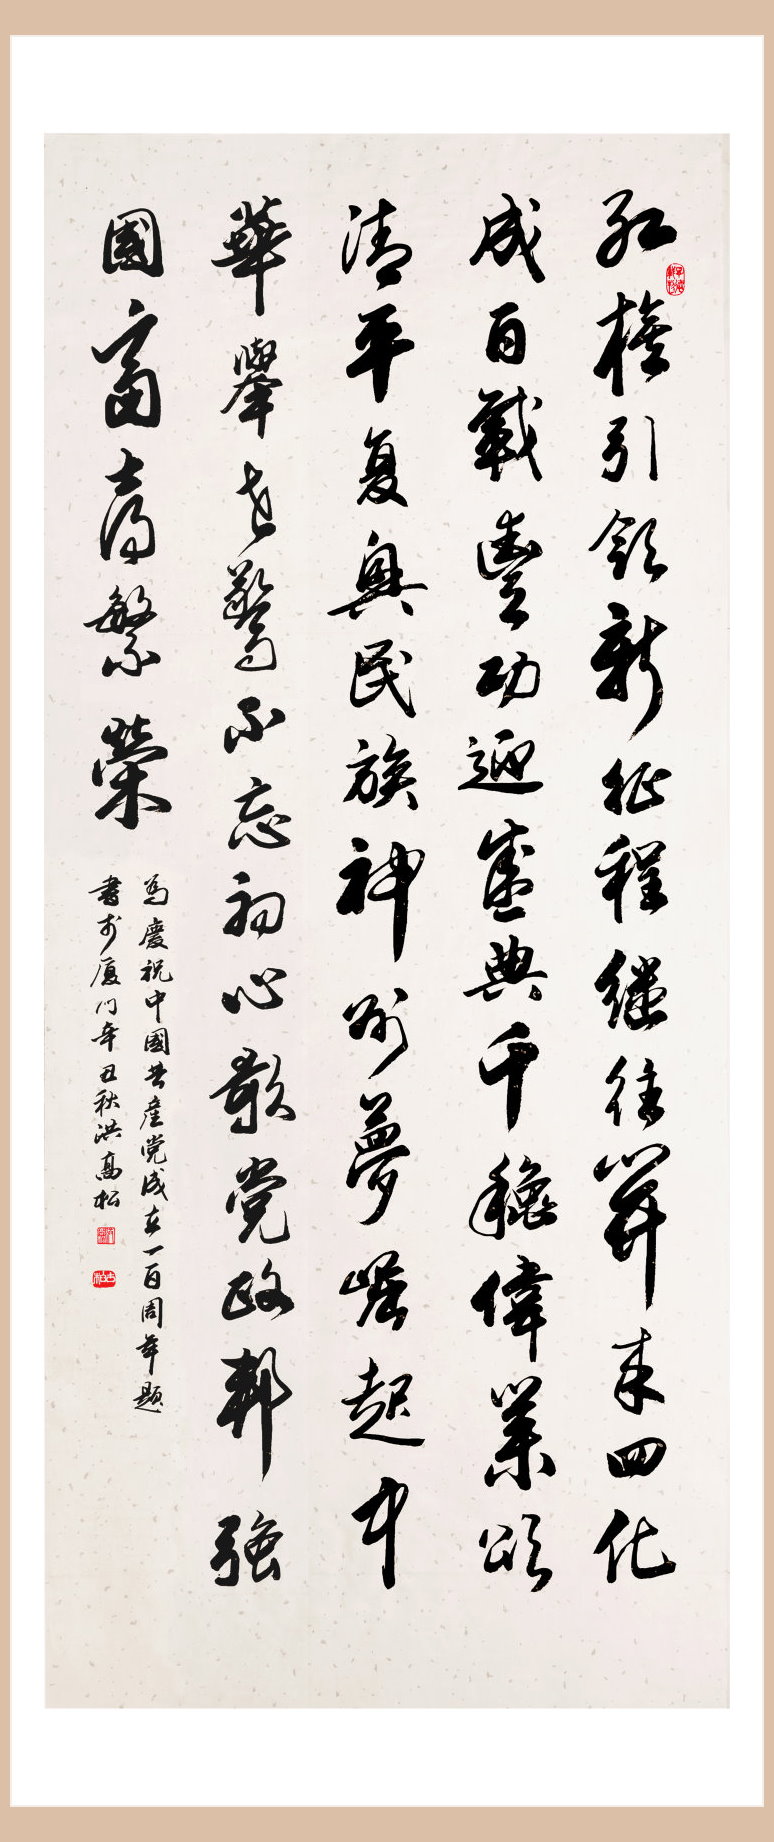 红旗引领新征程继往开来四化
成百载豐功迎盛典千穐偉業頌
清平复興民族神州夢崛起中
華舉世驚不忘初心歌党政邦强
國富壽繁榮
為慶祝中國共産党成立一百周年題
書於厦门辛丑秋洪高松